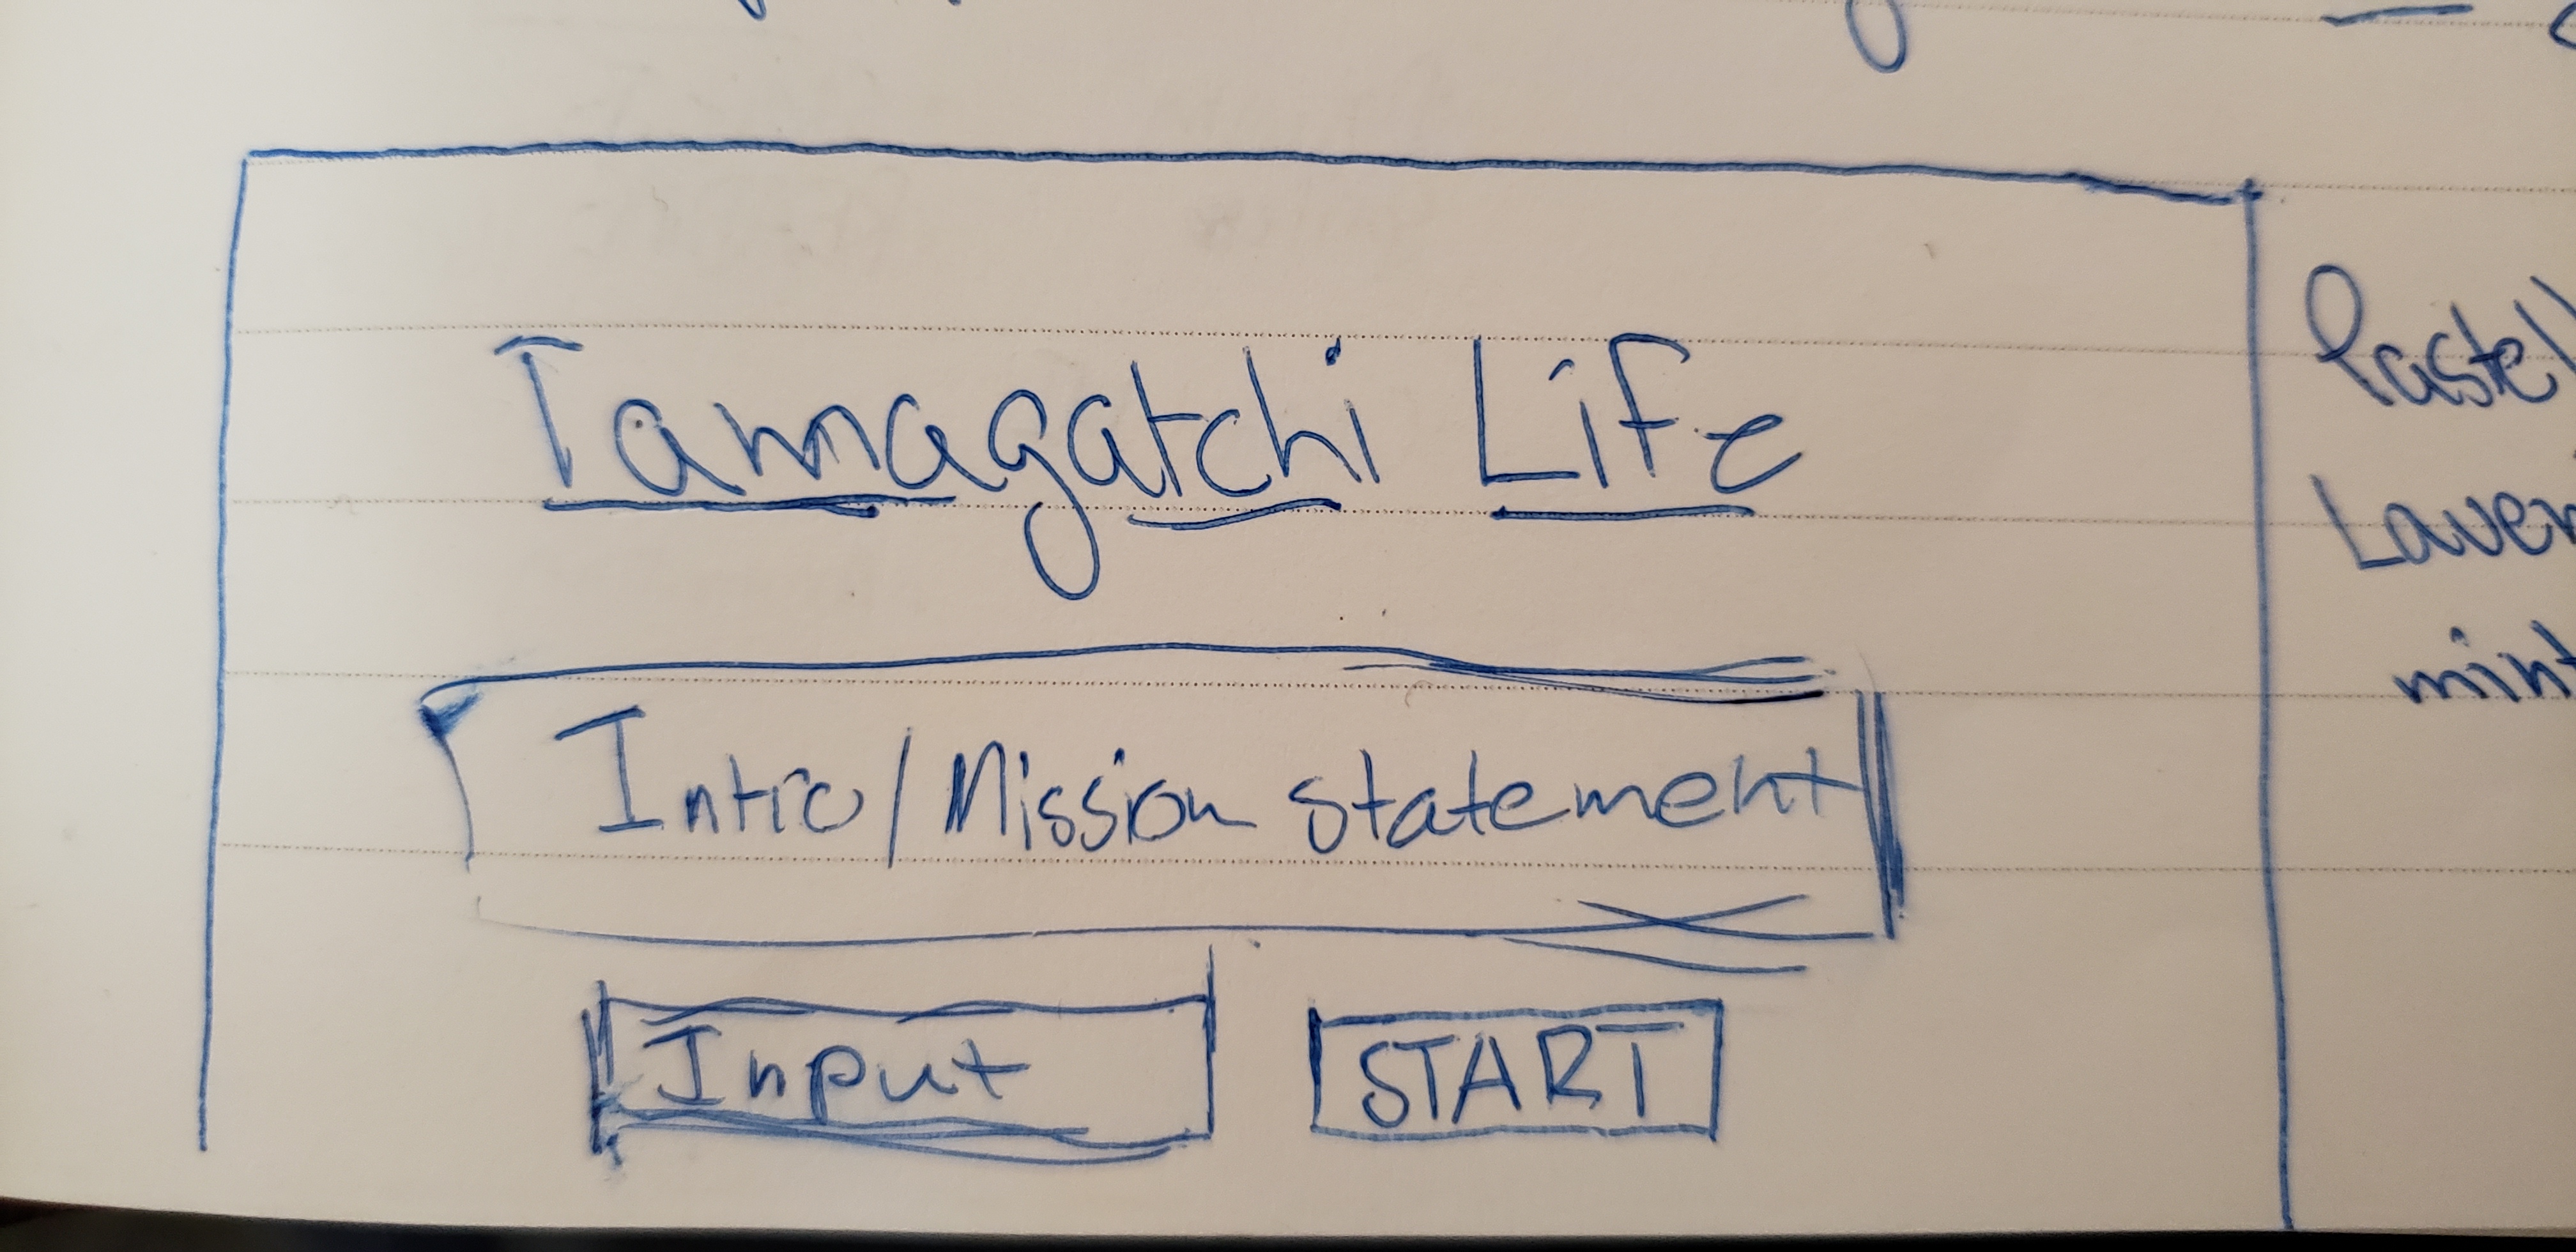 Tamagatchi Life
Intro/Mission statement
Input
START
Pastel
mint